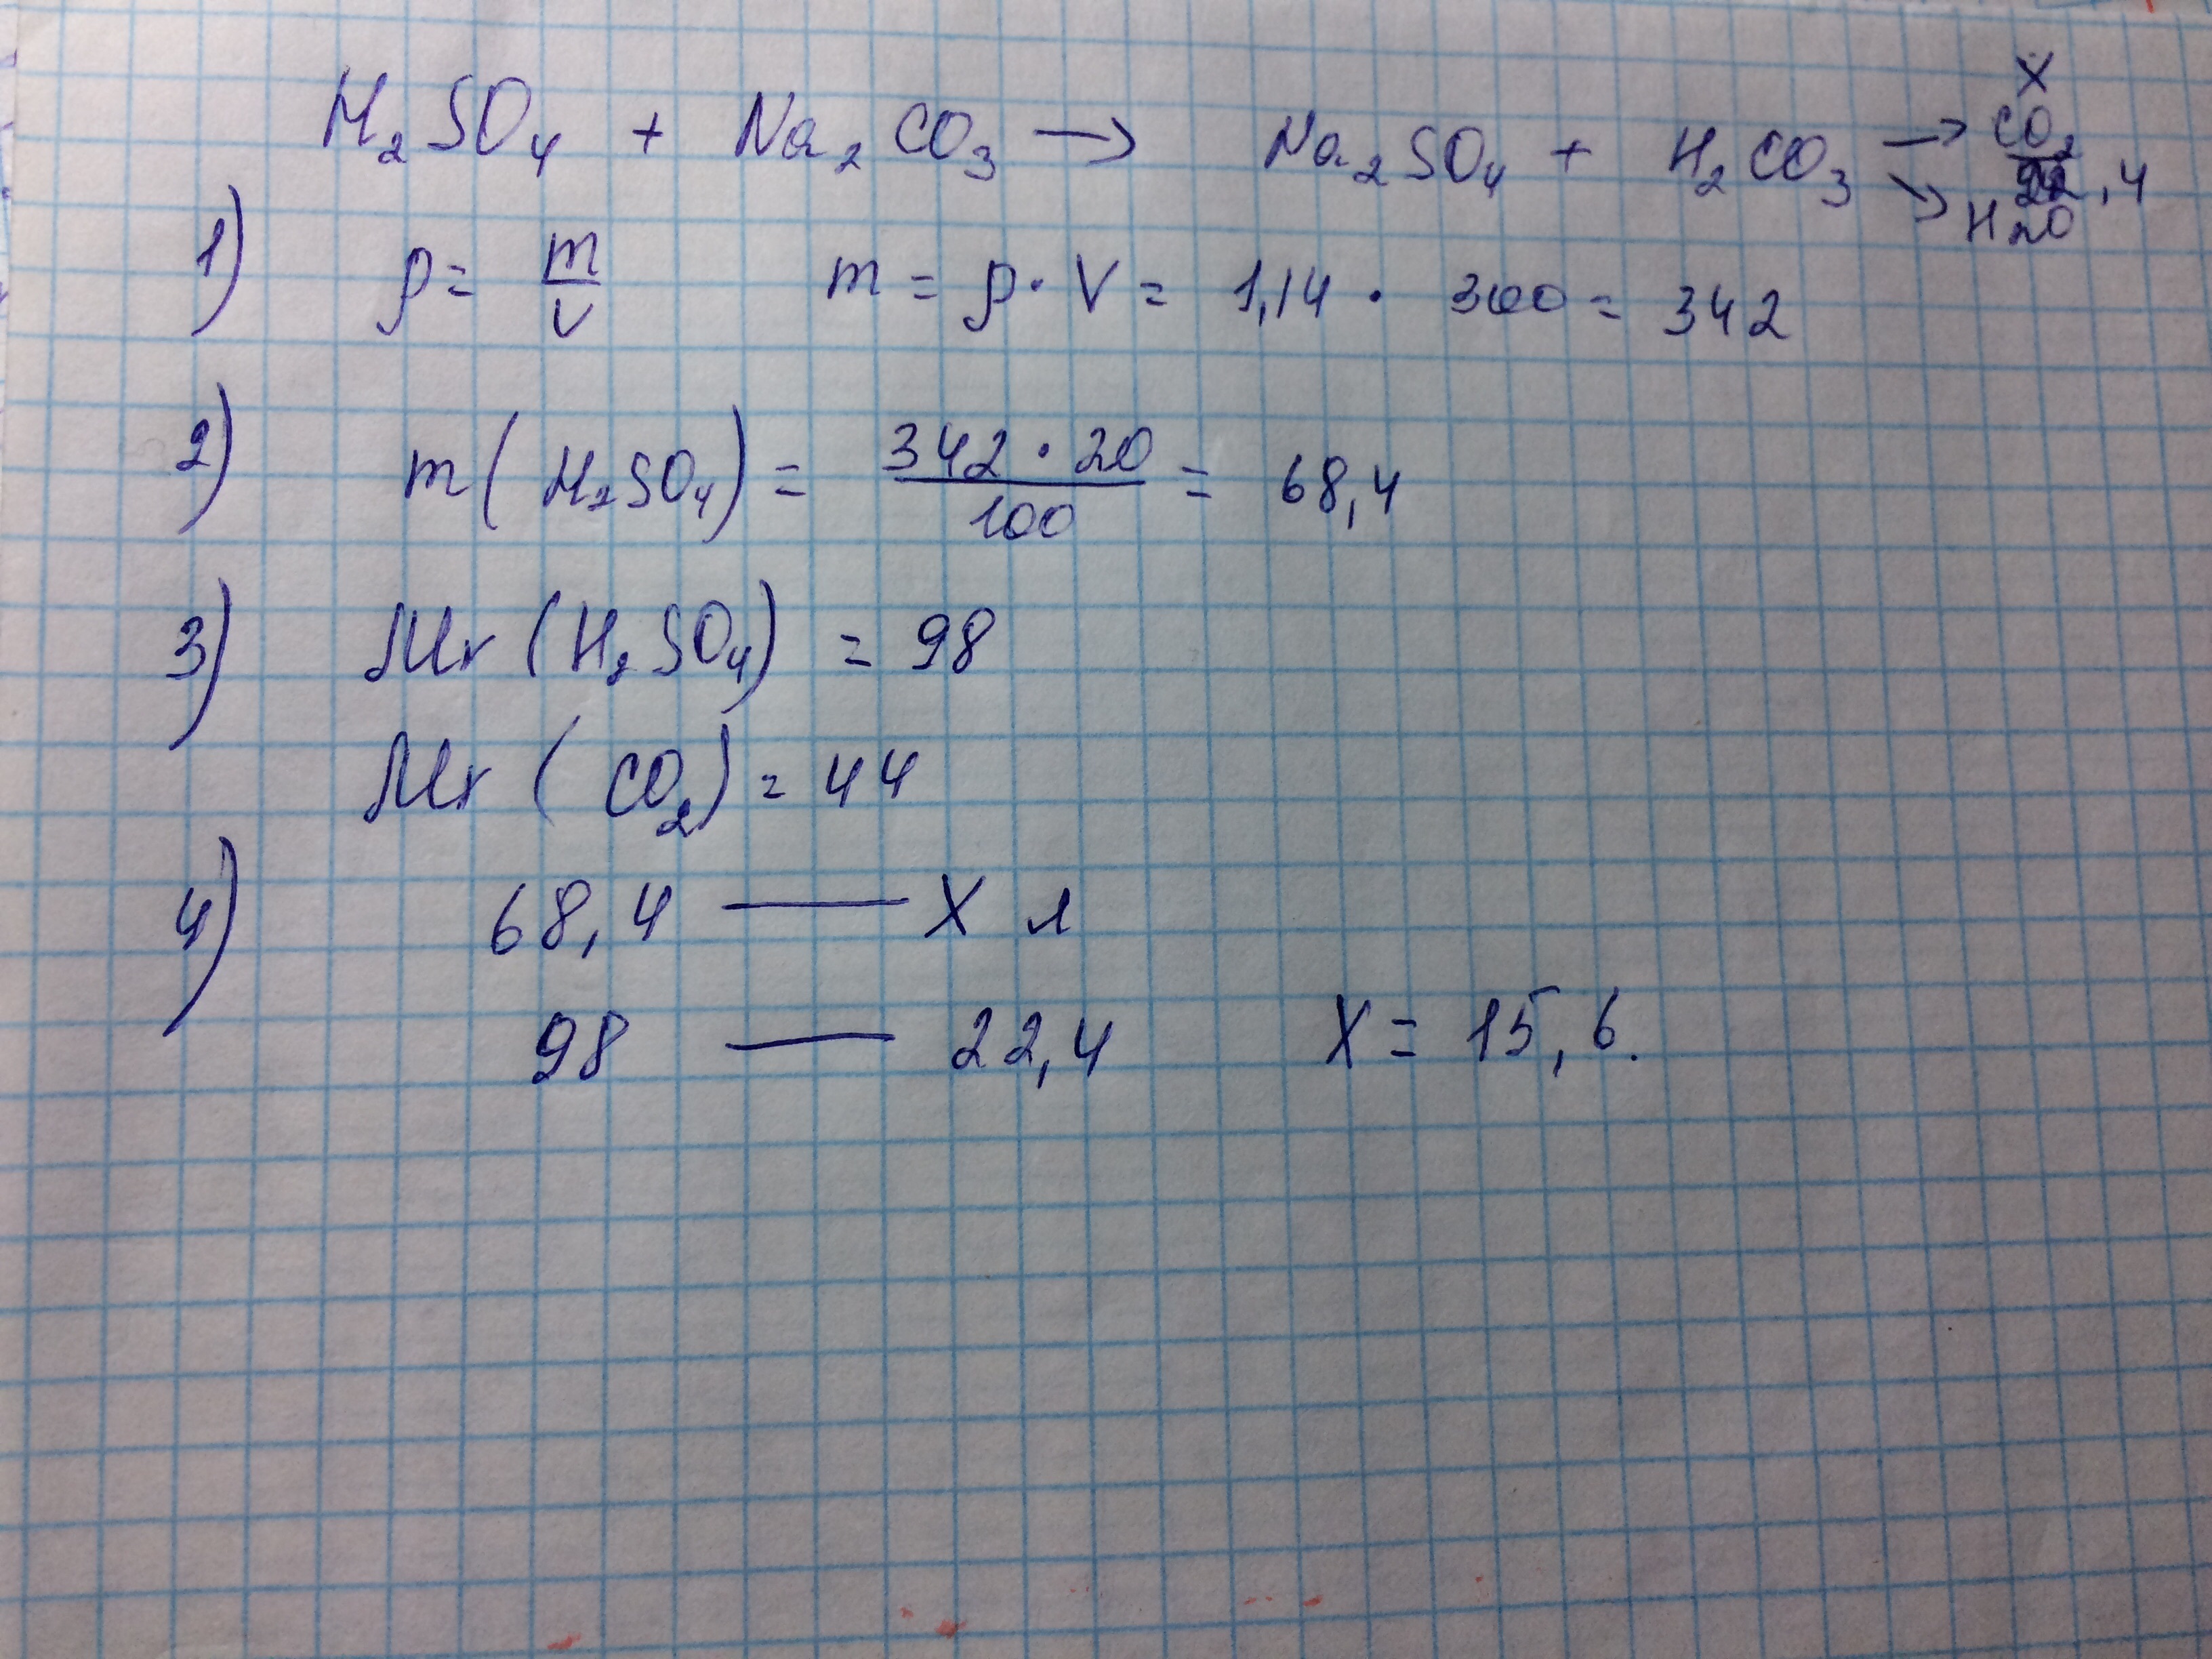 H₂SO₄ + Na₂CO₃ → Na₂SO₄ + H₂CO₃ → CO₂ X
↘ H₂O 22,4
1) ρ = m/V m = ρ · V = 1,14 · 300 = 342
2) m(H₂SO₄) = 342 · 20 / 100 = 68,4
3) Mr(H₂SO₄) = 98
Mr(CO₂) = 44
4) 68,4 — X л
98 — 22,4 X = 15,6.